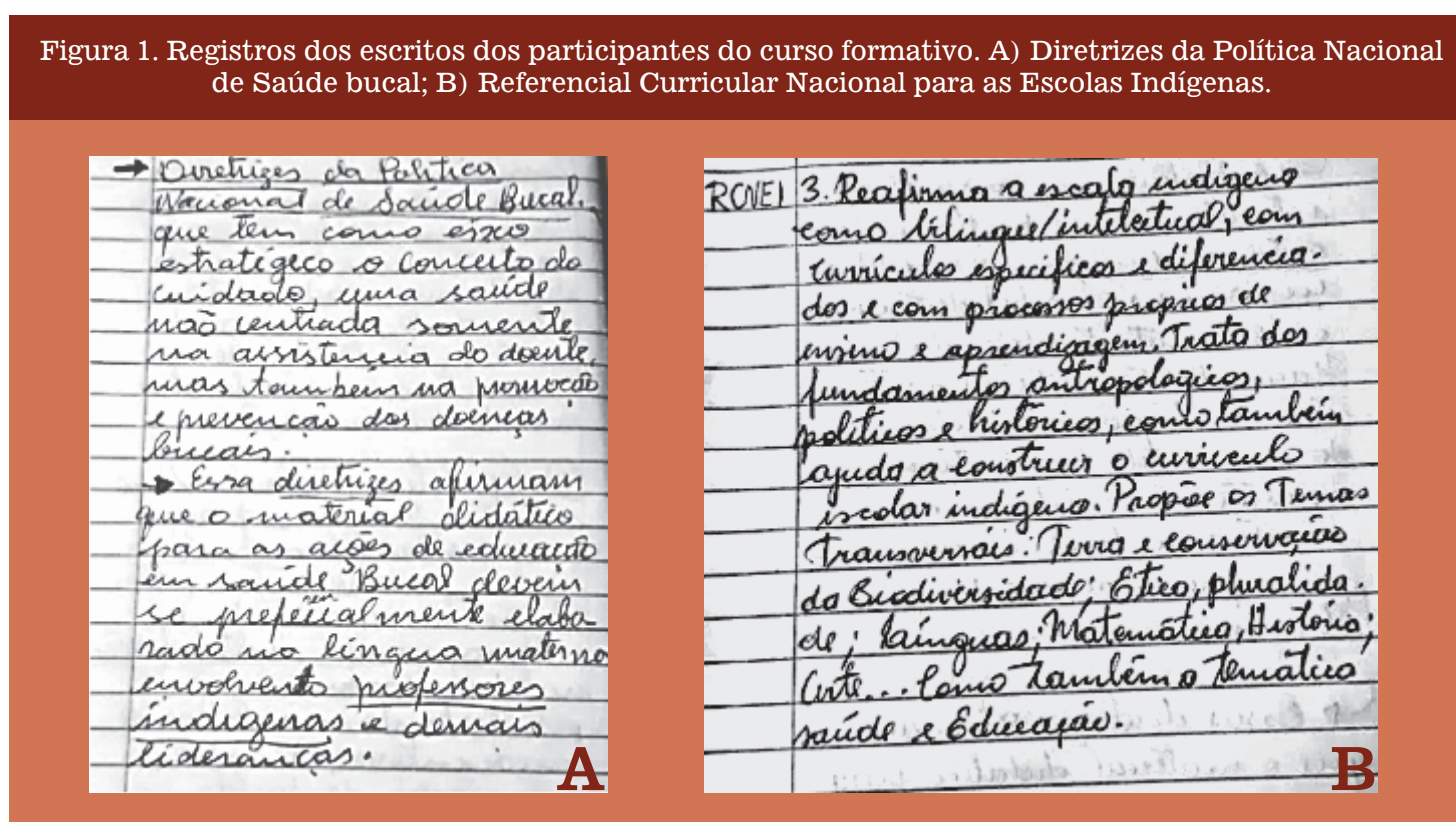 Figura 1. Registros dos escritos dos participantes do curso formativo. A) Diretrizes da Política Nacional
de Saúde bucal; B) Referencial Curricular Nacional para as Escolas Indígenas.
→ Diretrizes da Política
Nacional de Saúde Bucal.
que tem como eixo
estratégeco o conceito do
cuidado, uma saúde
não centrada somente
na assistencia do doente,
mas também na promoção
e prevenção das doenças
bucais.
→ Essa diretrizes afirmam
que o material didático
para as ações de educação
em saúde Bucal devem
se elabo
rado na língua materna
envolvento professores
indigenas e demais
lideranças.
A
RCNEI 3. Reafirma a escola indígena
como bilingue/intelectual, com
currículos especificos e diferencia-
dos e com processos proprios de
ensino e aprendizagem. Trata dos
fundamentos antropologicos,
politicos e históricos, como também
ajuda a construir o curriculo
escolar indígena. Propõe os Temas
Transversais: Terra e conservação
da Biodiversidade; Ética, pluralida-
de; Línguas; Matemática, História;
Arte... Como também a temática
saúde e Educação.
B